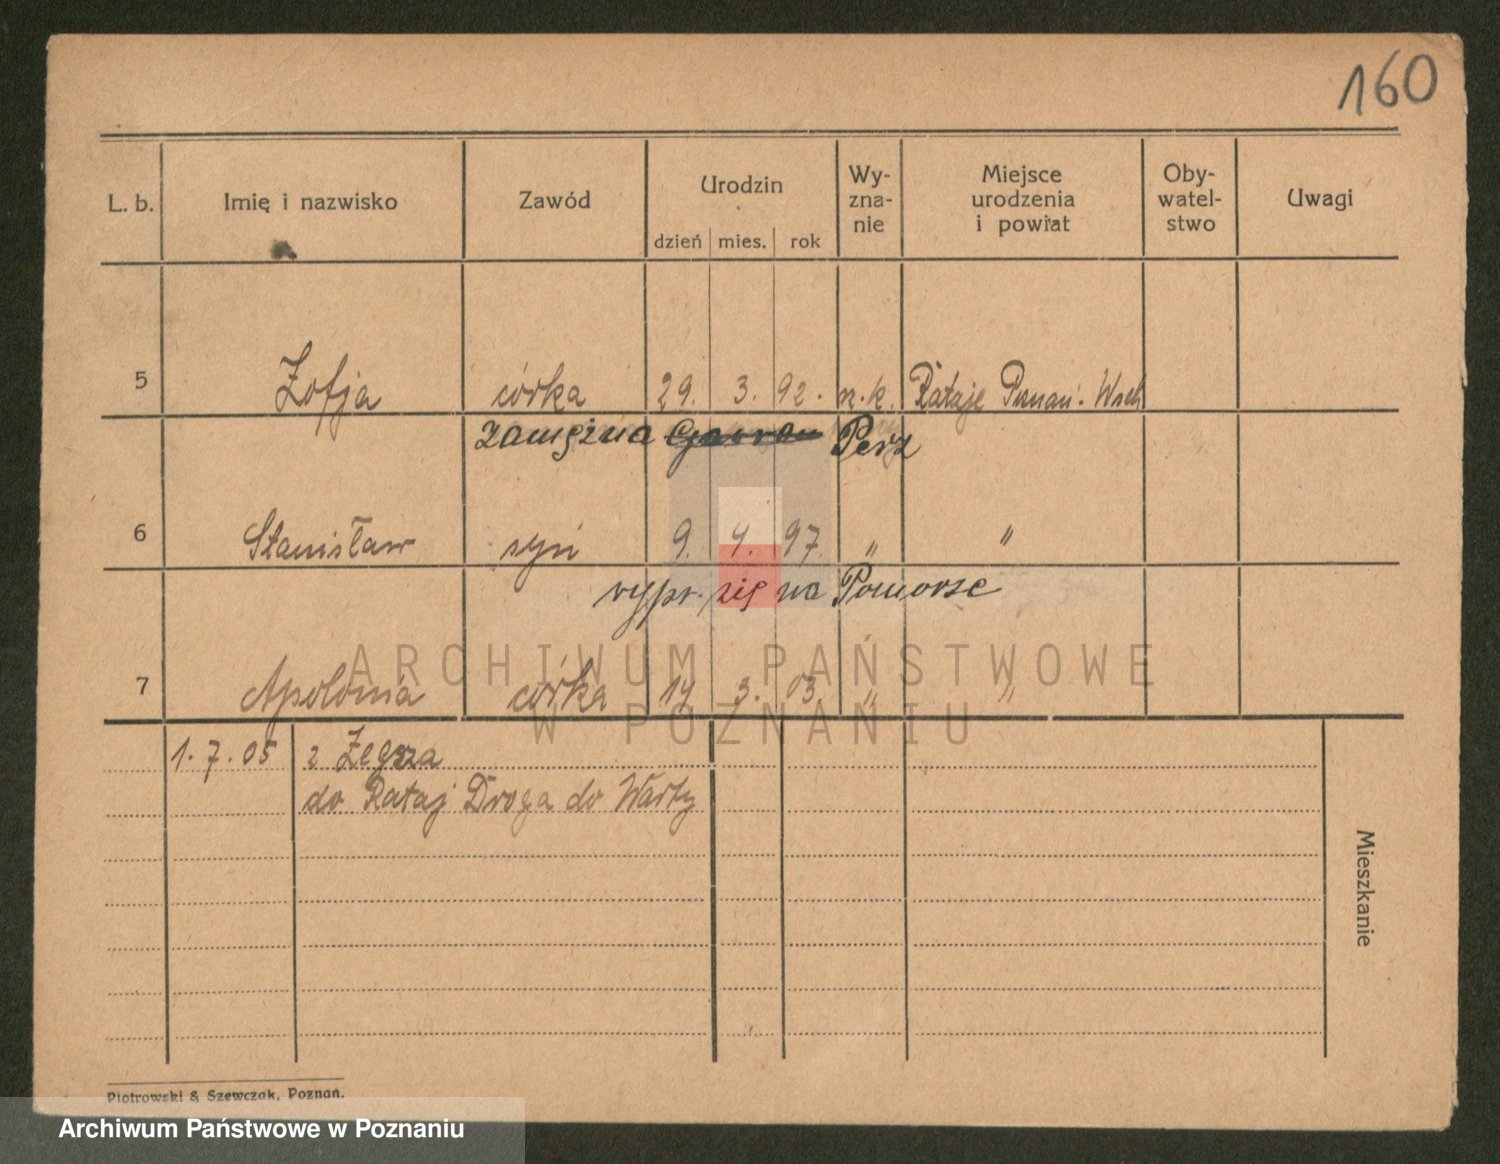 160
L. b. Imię i nazwisko Zawód Urodzin dzień mies. rok Wy- zna- nie Miejsce urodzenia i powiat Oby- watel- stwo Uwagi
5 Zofja córka 29. 3. 92. r. k. Rataje Poznań. Wsch
zamężna Perz
6 Stanisław syn 9. 4. 97. " "
wypr. się na Pomorze
7 Apolonia córka 14 3. 03. " "
1. 7. 05 z Żegrza
do Rataj Droga do Warty
Mieszkanie
Piotrowski & Szewczak, Poznań.
ARCHIWUM PAŃSTWOWE
W POZNANIU
Archiwum Państwowe w Poznaniu